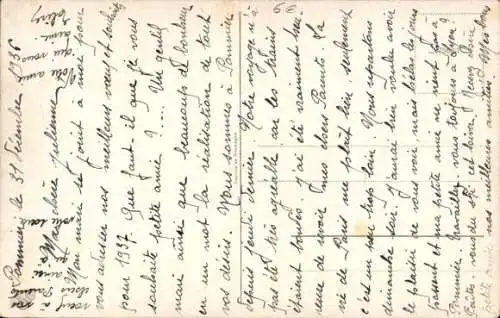 Pommier le 31 Décembre 1936
Ma chère Julienne
Mon mari se joint à moi pour
vous adresser nos meilleurs vœux et souhaits
pour 1937. Que faut-il que je vous
souhaite petite amie ? .... Un gentil
mari ainsi que beaucoup de bonheur
en un mot la réalisation de tout
vos désirs. Nous sommes à Pommier
depuis jeudi dernier. Notre voyage n'a
pas été très agréable car les trains
étaient bondés. J'ai été vraiment heu
reuse de revoir mes chers Parents. La
vie de Paris me plaît bien, seulement
c'est un peu trop loin. Nous repartons
dimanche soir. J'aurai bien voulu avoir
le plaisir de vous voir mais hélas les jours
passent et ma petite amie ne vient pas à
Pommier. Travaillez-vous toujours à Lyon ?
Faites-vous du ski c'est bien. Henry
petite amie nos meilleures amitiés. Mes bons
vœux à vos
chers Parents
ainsi
qu'à
votre
amie
qui vous
aime